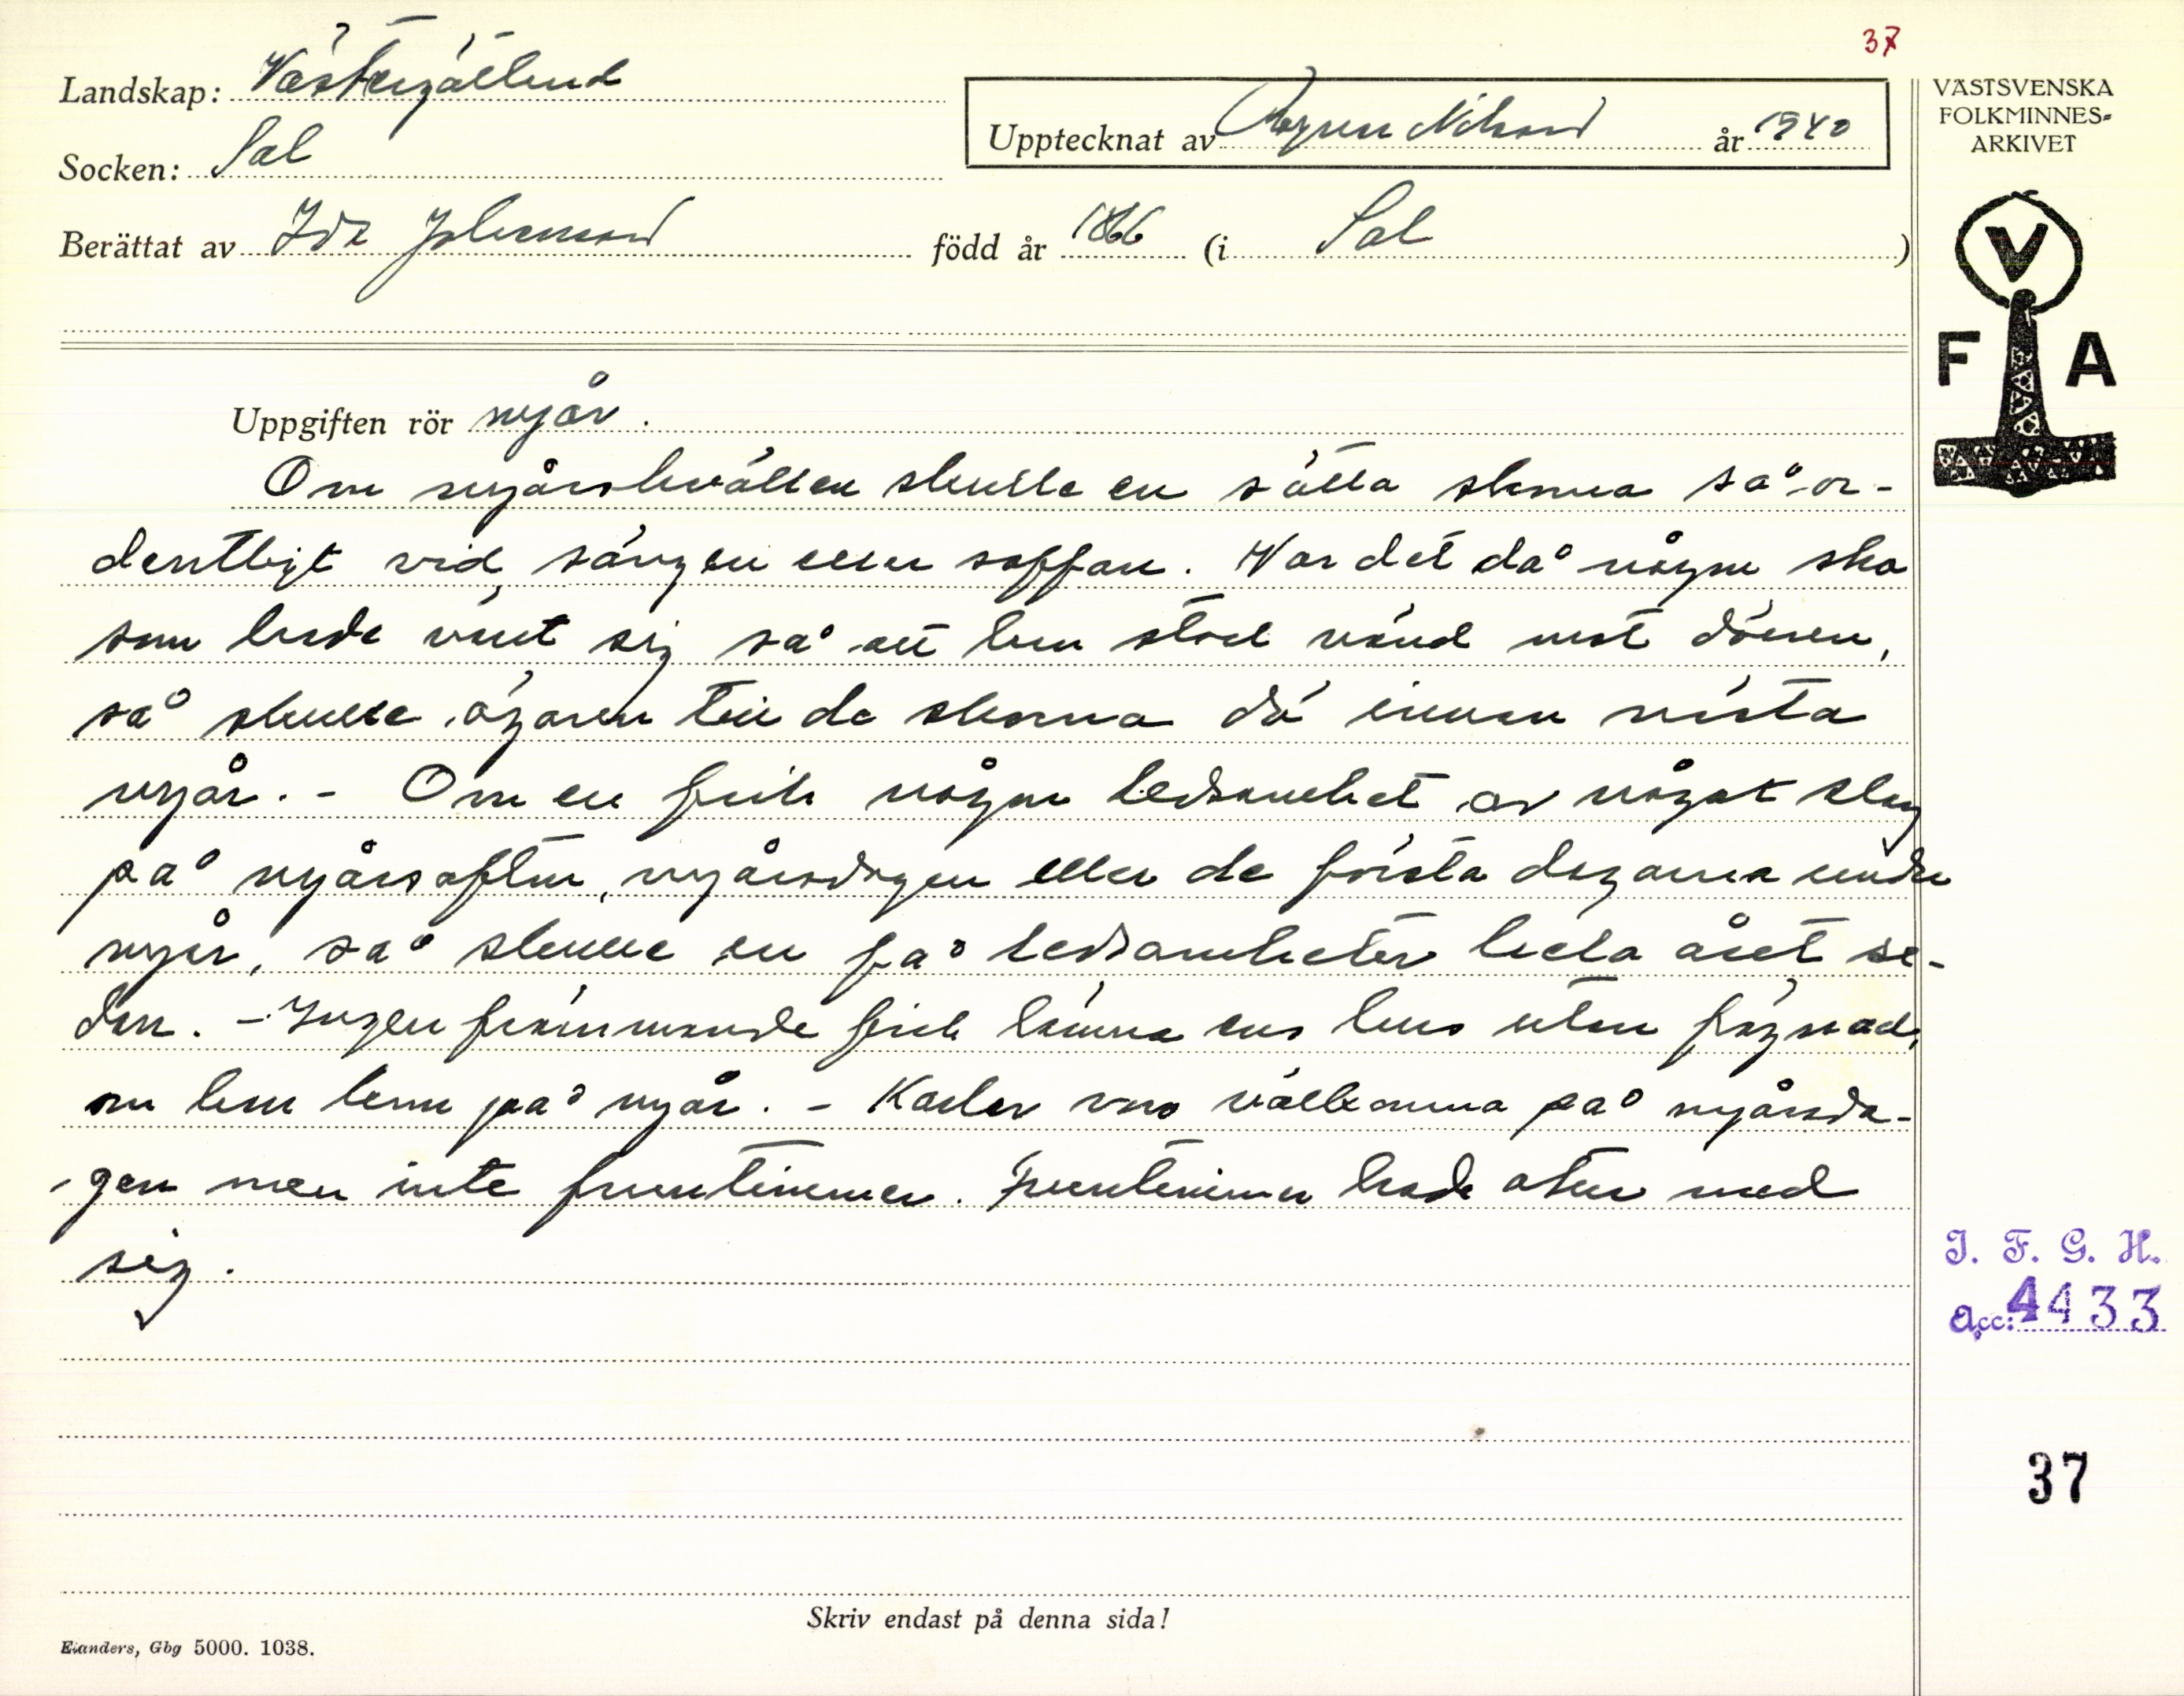 37
Landskap: Västergötland
Upptecknat av Ragnar Nilsson år 1940
Socken: Sal
Berättat av Ida Johansson född år 1866 (i Sal )
VÄSTSVENSKA
FOLKMINNES=
ARKIVET
V
F A
Uppgiften rör nyår.
Om nyårskvällen skulle en sätta skorna så or-
dentligt vid sängen eller soffan. Var det då någon sko
som hade vänt sig så att han stod vänd mot dörren,
så skulle ägaren till de skorna dö innan nästa
nyår. - Om en fick någon ledsamhet av något slag
på nyårsafton, nyårsdagen eller de första dagarna under
nyår, så skulle en få ledsamheter hela året se-
dan. - Ingen främmande fick lämna ens hus utan fägnad,
om han kom på nyår. - Karlar var välkomna på nyårsda-
gen men inte fruntimmer. Fruntimmer hade otur med
sig.
I. F. G. H.
Acc: 4433
37
Skriv endast på denna sida!
Elanders, Gbg 5000. 1038.